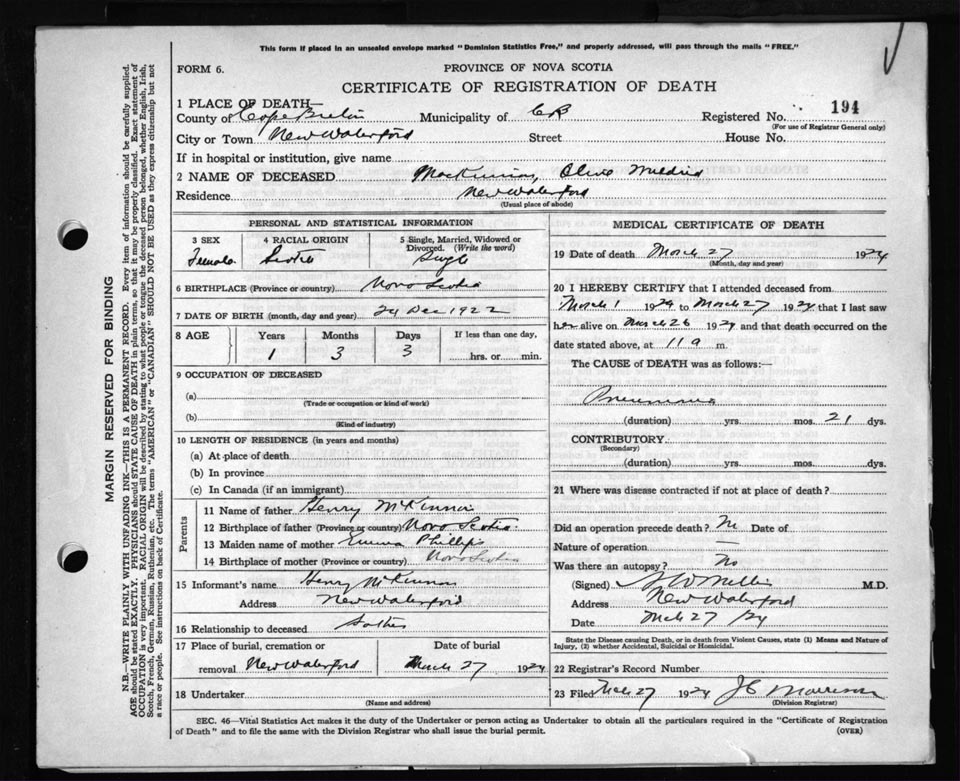 This form if placed in an unsealed envelope marked "Dominion Statistics Free," and properly addressed, will pass through the mails "FREE."
FORM 6.
PROVINCE OF NOVA SCOTIA
CERTIFICATE OF REGISTRATION OF DEATH
1 PLACE OF DEATH—
County of Cape Breton Municipality of CB Registered No. 194
(For use of Registrar General only)
City or Town New Waterford Street House No.
If in hospital or institution, give name
2 NAME OF DECEASED MacKinnon, Olive Mildred
Residence New Waterford
(Usual place of abode)
PERSONAL AND STATISTICAL INFORMATION
3 SEX 4 RACIAL ORIGIN 5 Single, Married, Widowed or Divorced. (Write the word)
Female Scotch Single
6 BIRTHPLACE (Province or country) Nova Scotia
7 DATE OF BIRTH (month, day and year) 24 Dec 1922
8 AGE Years Months Days If less than one day,
1 3 3 hrs. or min.
9 OCCUPATION OF DECEASED
(a)
(Trade or occupation or kind of work)
(b)
(Kind of industry)
10 LENGTH OF RESIDENCE (in years and months)
(a) At place of death
(b) In province
(c) In Canada (if an immigrant)
Parents
11 Name of father Henry McKinnon
12 Birthplace of father (Province or country) Nova Scotia
13 Maiden name of mother Emma Phillips
14 Birthplace of mother (Province or country) Nova Scotia
15 Informant's name Henry McKinnon
Address New Waterford
16 Relationship to deceased Father
17 Place of burial, cremation or Date of burial
removal New Waterford March 27 1924
18 Undertaker
(Name and address)
MEDICAL CERTIFICATE OF DEATH
19 Date of death March 27 1924
(Month, day and year)
20 I HEREBY CERTIFY that I attended deceased from
March 1 1924 to March 27 1924 that I last saw
her alive on March 26 1924 and that death occurred on the
date stated above, at 11 a m.
The CAUSE of DEATH was as follows:
Pneumonia
(duration) yrs. mos. 21 dys.
CONTRIBUTORY
(Secondary)
(duration) yrs. mos. dys.
21 Where was disease contracted if not at place of death?
Did an operation precede death? No Date of
Nature of operation —
Was there an autopsy? No
(Signed) M.D.
Address New Waterford
Date Mch 27 /24
State the Disease causing Death, or in death from Violent Causes, state (1) Means and Nature of
Injury, (2) whether Accidental, Suicidal or Homicidal.
22 Registrar's Record Number
23 Filed Mch 27 1924 J C Morrison
(Division Registrar)
SEC. 46—Vital Statistics Act makes it the duty of the Undertaker or person acting as Undertaker to obtain all the particulars required in the "Certificate of Registration
of Death" and to file the same with the Division Registrar who shall issue the burial permit. (OVER)
MARGIN RESERVED FOR BINDING
N.B.—WRITE PLAINLY WITH UNFADING INK—THIS IS A PERMANENT RECORD. Every item of information should be carefully supplied.
AGE should be stated EXACTLY. PHYSICIANS should STATE CAUSE OF DEATH in plain terms, so that it may be properly classified. Exact statement of
OCCUPATION is very important. RACIAL ORIGIN will be described by stating to what people or tongue the deceased person belonged, whether English, Irish,
Scotch, French, German, Russian, Ruthenian, etc. The terms "AMERICAN" or "CANADIAN" SHOULD NOT BE USED as they express citizenship but not
a race or people. See instructions on back of Certificate.